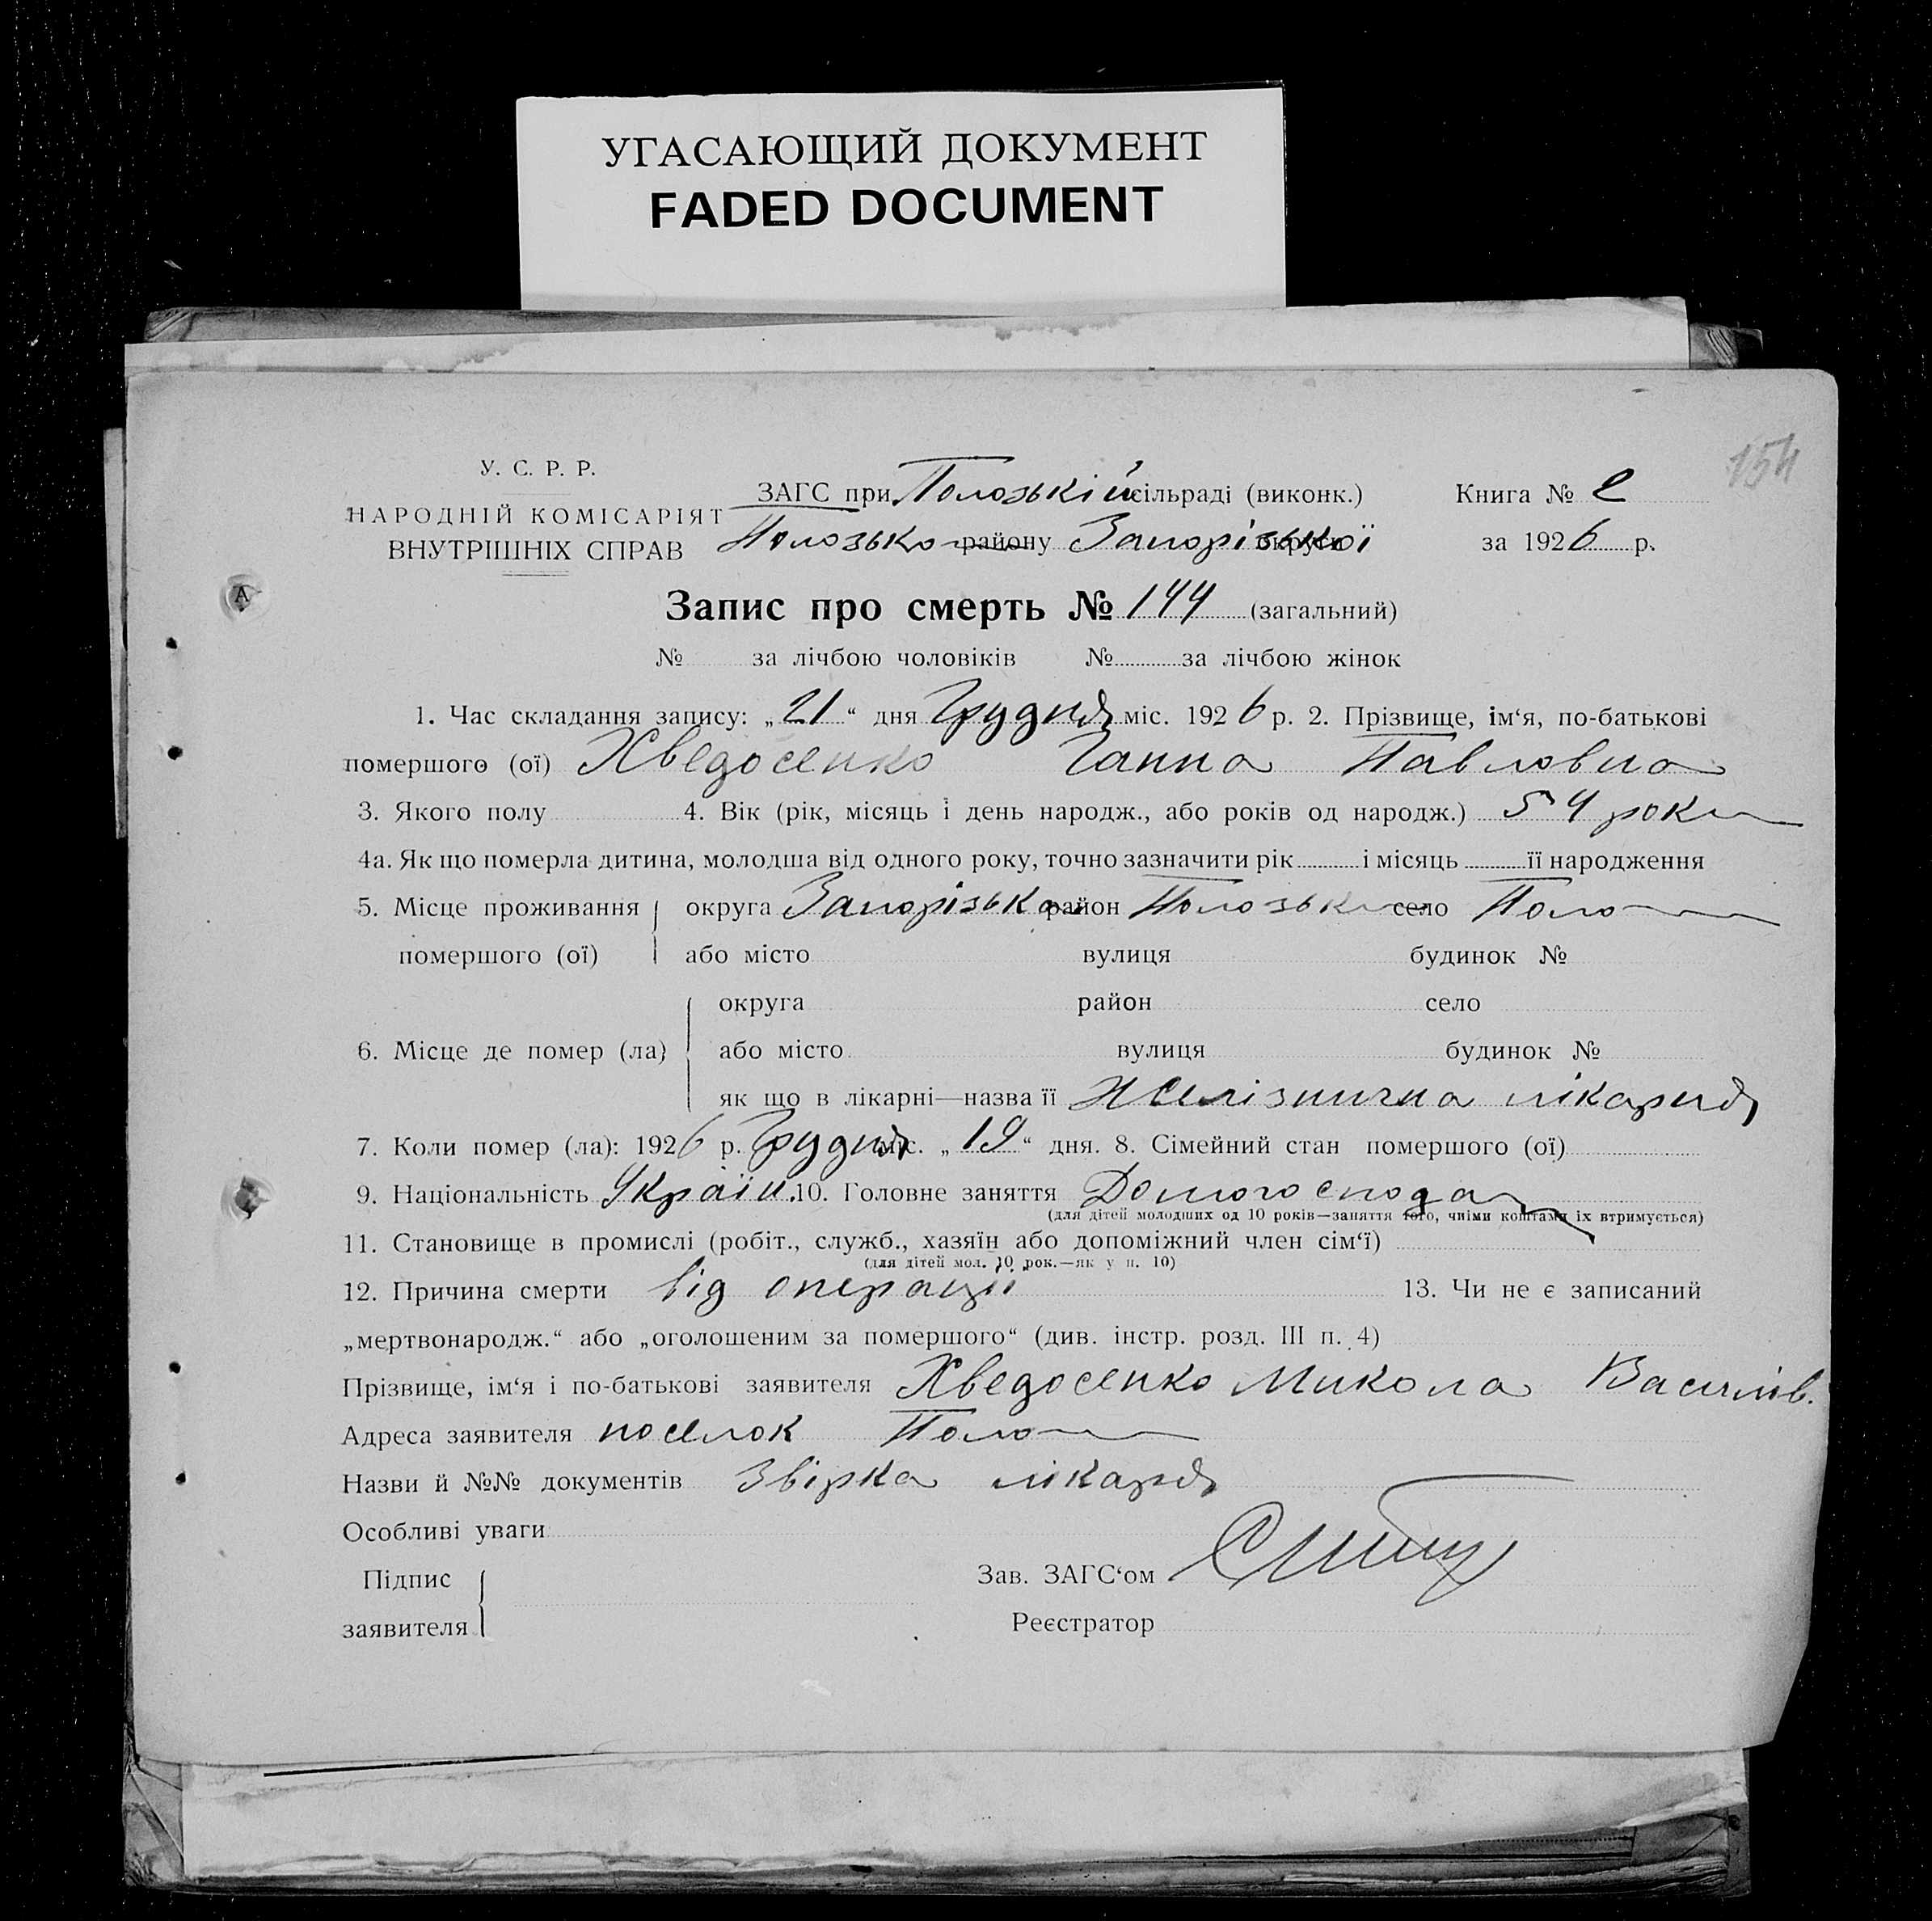 УГАСАЮЩИЙ ДОКУМЕНТ
FADED DOCUMENT
154
У. С. Р. Р.
НАРОДНІЙ КОМІСАРІЯТ
ВНУТРІШНІХ СПРАВ
ЗАГС при Полозькій сільраді (виконк.) Книга № 2
Полозько району Запорізької округи за 1926 р.
Запис про смерть № 144 (загальний)
№ за лічбою чоловіків № за лічбою жінок
1. Час складання запису: „21“ дня Грудня міс. 1926 р. 2. Прізвище, ім‘я, по-батькові
помершого (ої) Хведосенко Ганна Павловна
3. Якого полу 4. Вік (рік, місяць і день народж., або років од народж.) 54 роки
4а. Як що померла дитина, молодша від одного року, точно зазначити рік і місяць її народження
5. Місце проживання округа Запорізька район Полозьк село Поло
помершого (ої) або місто вулиця будинок №
округа район село
6. Місце де помер (ла) або місто вулиця будинок №
як що в лікарні—назва її Желізнична лікарня
7. Коли помер (ла): 1926 р. Грудня міс. „19“ дня. 8. Сімейний стан помершого (ої)
9. Національність Україн. 10. Головне заняття Домогоспода
(для дітей молодших од 10 років—заняття того, чиїми коштами їх втримується)
11. Становище в промислі (робіт., служб., хазяїн або допоміжний член сім‘ї)
(для дітей мол. 10 рок.—як у п. 10)
12. Причина смерти від операції 13. Чи не є записаний
„мертвонародж.“ або „оголошеним за помершого“ (див. інстр. розд. III п. 4)
Прізвище, ім‘я і по-батькові заявителя Хведосенко Микола Василів.
Адреса заявителя поселок Поло
Назви й №№ документів Звірка лікаря
Особливі уваги
Підпис Зав. ЗАГС‘ом
заявителя Реєстратор